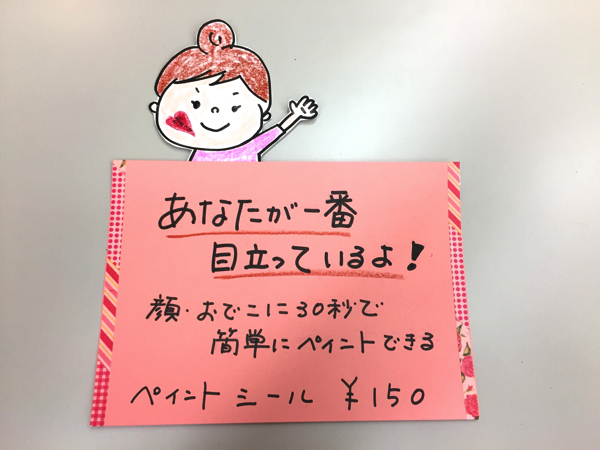 あなたが一番
目立っているよ！
顔・おでこに30秒で
簡単にペイントできる
ペイントシール ¥150